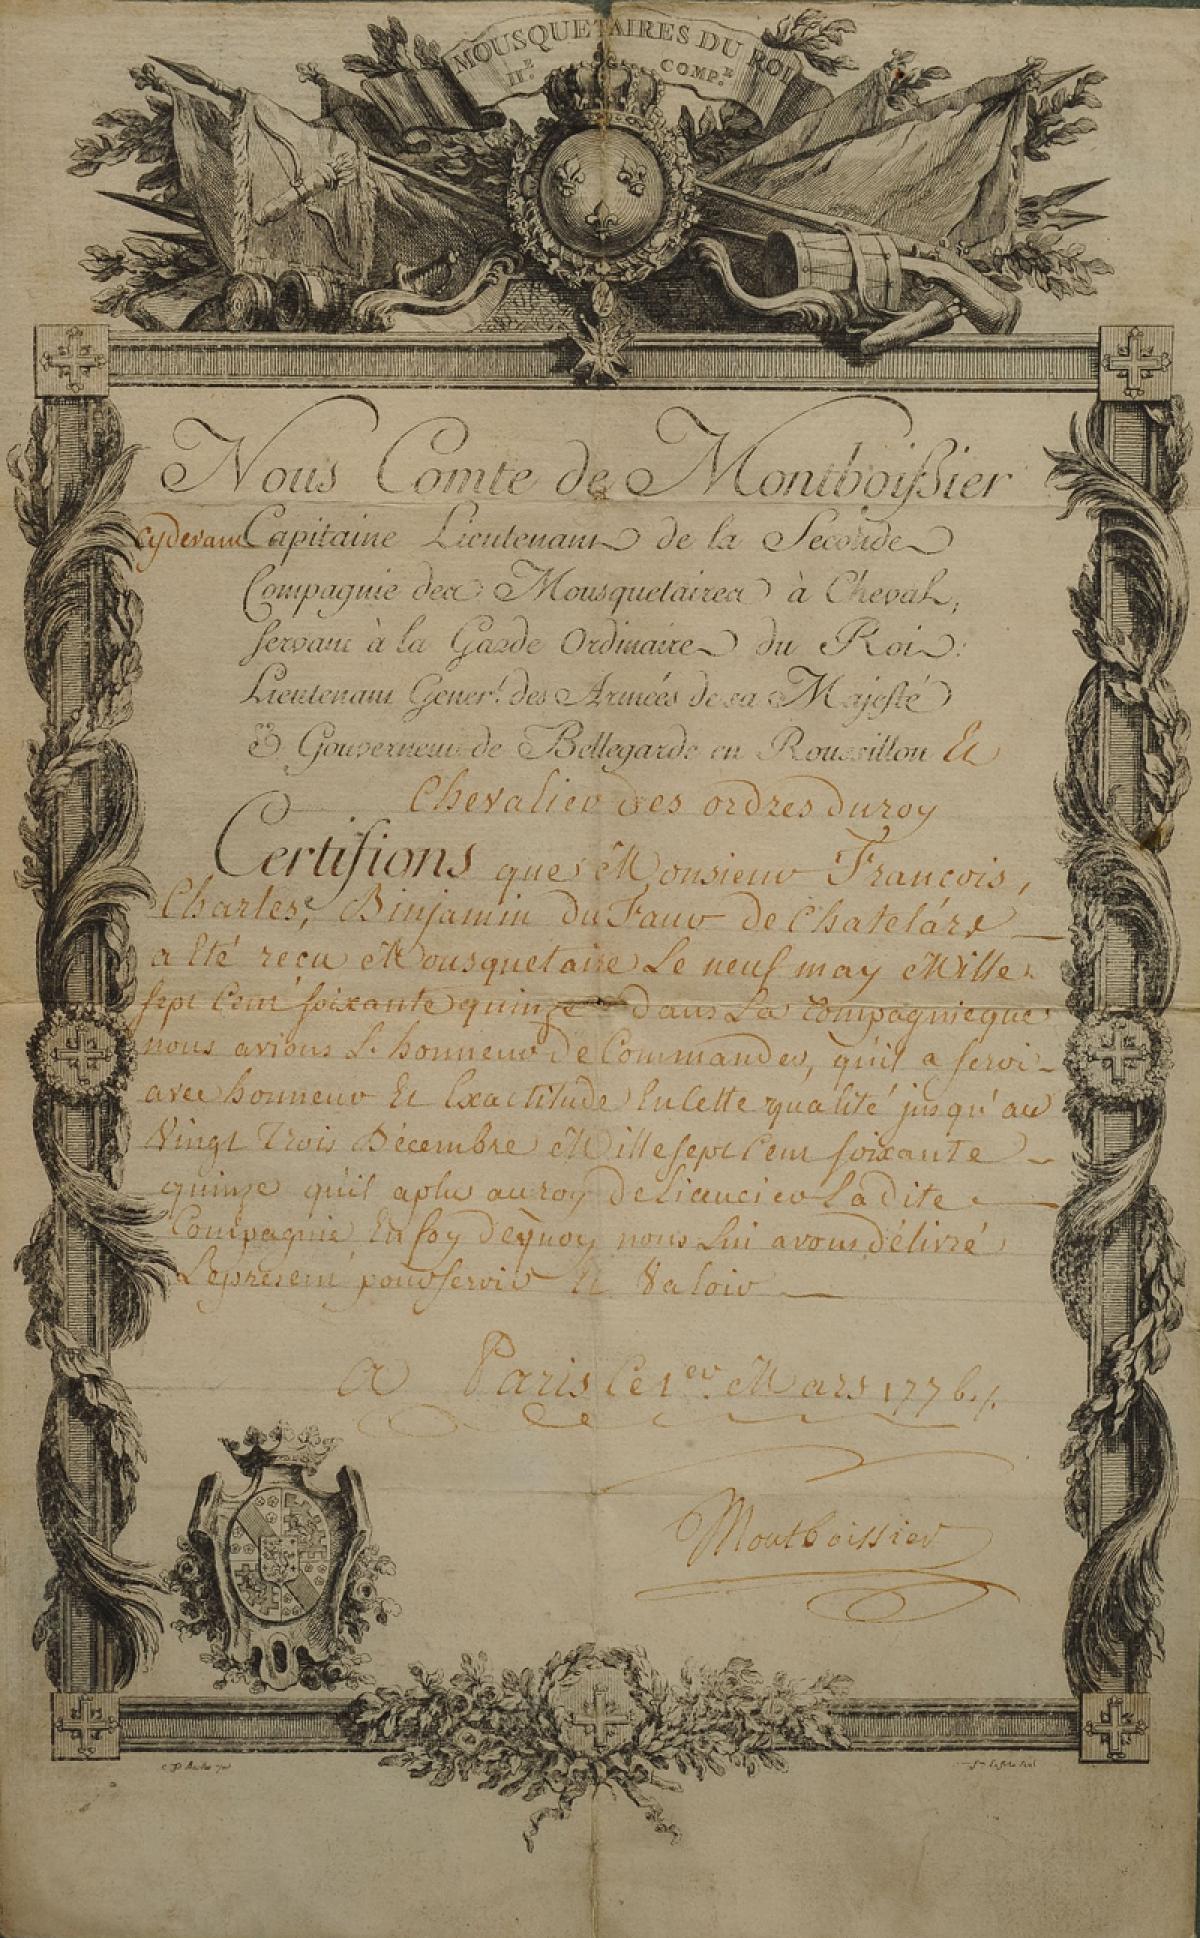 MOUSQUETAIRES DU ROI
II.E COMP.E
Nous Comte de Montboissier
cydevant Capitaine Lieutenant de la Seconde
Compagnie des Mousquetaires à Cheval,
servant à la Garde Ordinaire du Roi:
Lieutenant Géner.l des Armées de sa Majesté
& Gouverneur de Bellegarde en Roussillon Et
Chevalier des ordres du roy
Certifions que Monsieur François,
Charles, Binjamin Du Faur de Chatelárd
a Eté reçu Mousquetaire Le neuf may Mille
sept Cent soixante quinze dans La Compagnie que
nous avions L'honneur De Commander, qu'il a servi
avec honneur Et Exactitude En Cette qualité jusqu'au
Vingt Trois Décembre Mille sept Cent soixante
quinze qu'il a plu au roy De Licencier La dite
Compagnie En foy De quoy nous Lui avons délivré
Le présent pour servir Et Valoir
A Paris Ce 1er. Mars 1776./.
Montboissier